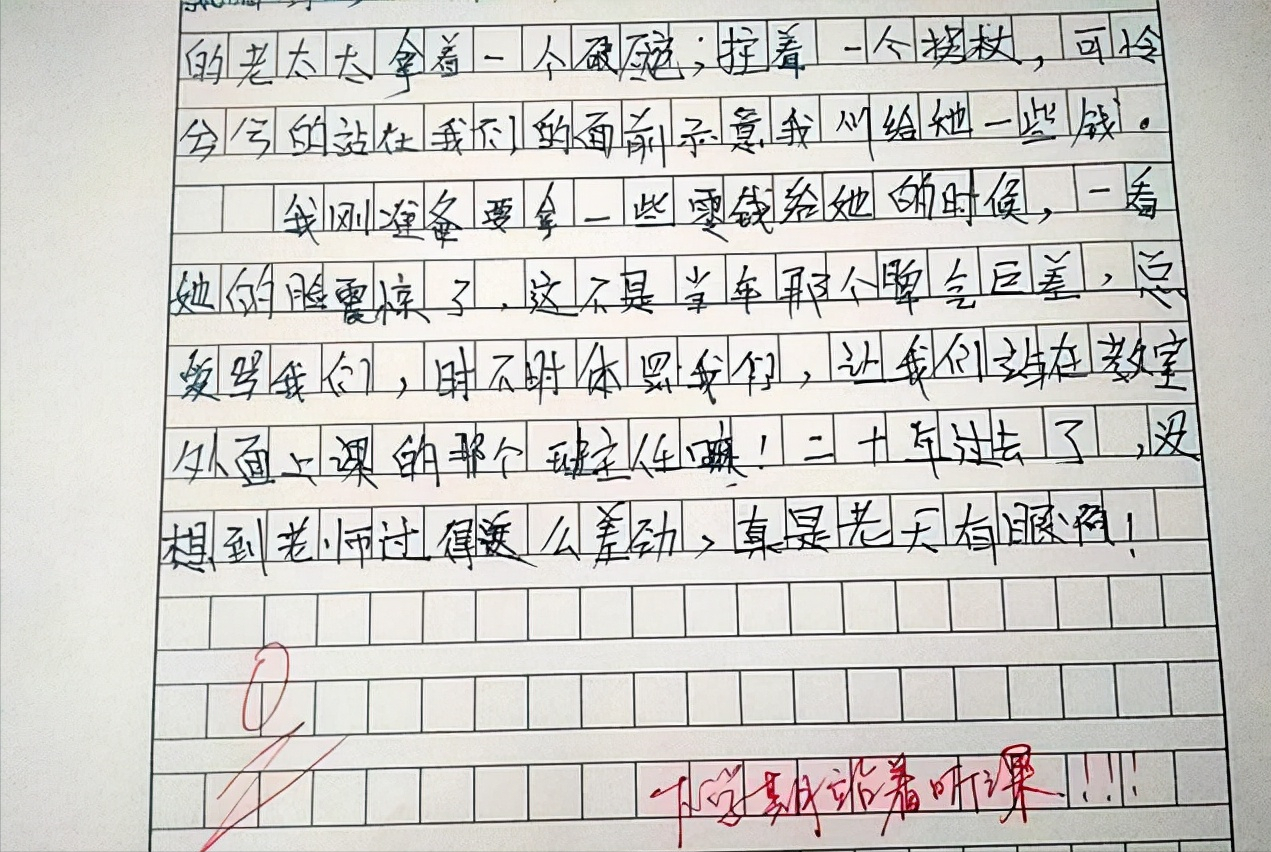 的老太太拿着一个破碗；拄着一个拐杖，可怜
兮兮的站在我们的面前示意我们给她一些钱。
我刚准备要拿一些零钱给她的时候，一看
她的脸震惊了，这不是当年那个脾气巨差，总
爱骂我们，时不时体罚我们，让我们站在教室
外面上课的那个班主任嘛！二十年过去了，没
想到老师过得这么差劲，真是老天有眼啊！
0
下学期站着听课!!!